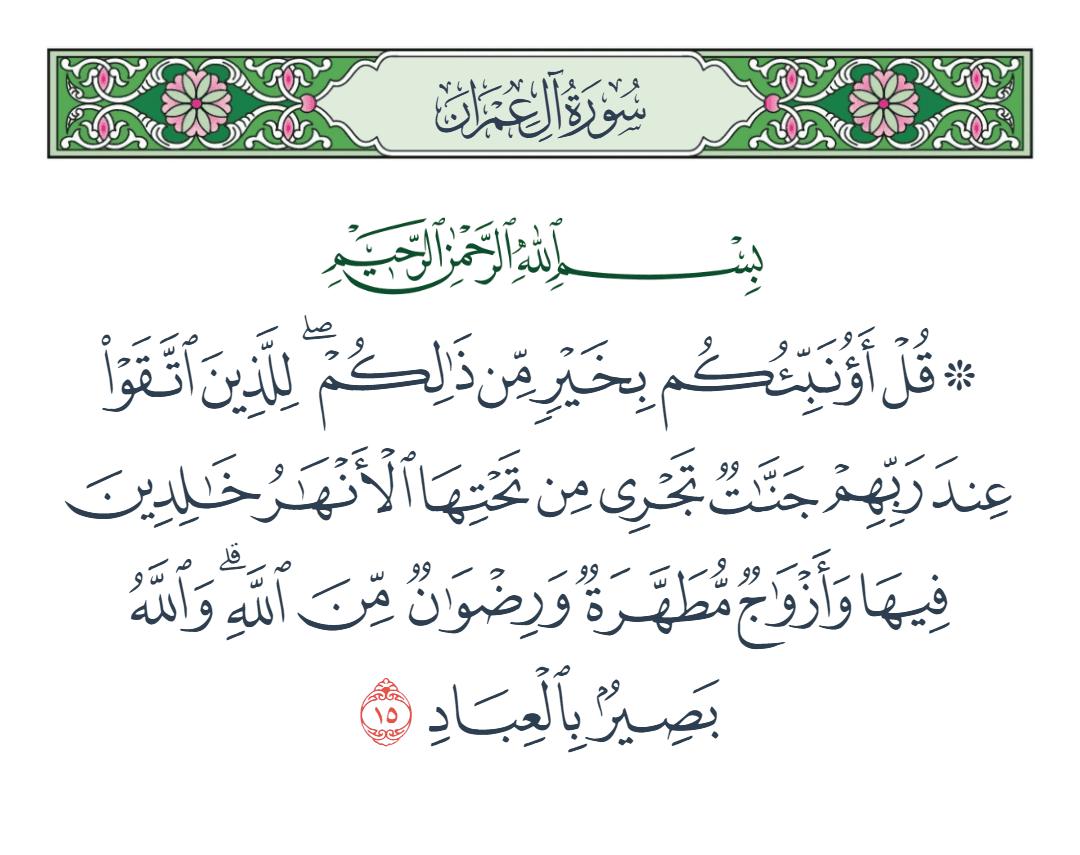 سُورَةُ آلِ عِمْرَانَ
بِسْمِ ٱللَّهِ ٱلرَّحْمَٰنِ ٱلرَّحِيمِ
۞ قُلْ أَؤُنَبِّئُكُم بِخَيْرٍ مِّن ذَٰلِكُمْ ۖ لِلَّذِينَ ٱتَّقَوْا۟
عِندَ رَبِّهِمْ جَنَّٰتٌ تَجْرِى مِن تَحْتِهَا ٱلْأَنْهَٰرُ خَٰلِدِينَ
فِيهَا وَأَزْوَٰجٌ مُّطَهَّرَةٌ وَرِضْوَٰنٌ مِّنَ ٱللَّهِ ۗ وَٱللَّهُ
بَصِيرٌۢ بِٱلْعِبَادِ ١٥